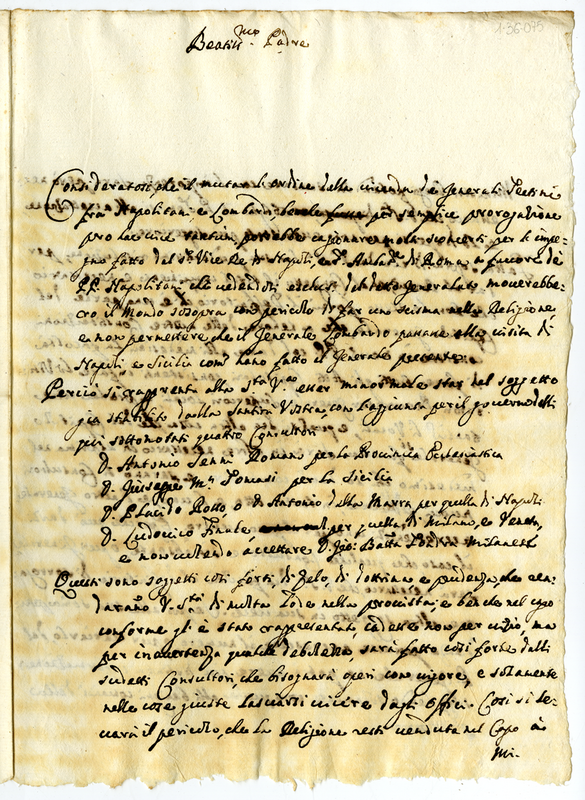 1-36-075
Beatiss.mo Padre
Consideratosi, che il mutar l'ordine della vicenda de Generali Teatini
fra Napolitani, e Lombardi, per semplice prorogatione
pro hac vice tantum, potrebbe caggionare molti sconcerti per le impe-
gno fatto dal S.r Vice Re di Napoli, ed Amb.r di Roma a favore de
PP. Napolitani che vedendosi esclusi dal detto generalato moverebbe-
ro il Mondo sosopra con pericolo di far uno scisma nella Religione,
e non permettere, che il Generale Lombardo passare alla visita di
Napoli, e Sicilia com' hanno fatto il Generale
Perciò si rappresenta alla S.tà V.ra esser minor male star nel soggetto
già stabilito dalla Santità Vostra, con l'aggiunta per il governo delli
qui sottonotati quattro Consultori
D. Antonio Romano per la Provincia Ecclesiastica
D. Giuseppe M.a Tomasi per la Sicilia
D. Placido o D. Antonio della Marra per quella di Napoli
D. Ludovico Finale per quella di Milano, e Veneta,
e non volendo accettare D. Gio: Batta Milanese
Questi sono soggetti così forti, di zelo, di dottrina e prudenza, che
daranno V. S.tà di molta lode nella provista, e benche nel capo
conforme gli è stato rappresentato, cadesse non per vitio, ma
per inavertenza qualche debolezza, sarà fatto così forte dalli
sudetti Consultori, che bisognarà operi con vigore, e solamente
nelle cose giuste lasciarsi vincere dagli Offici. Così si le-
varà il pericolo, che la Religione resti venduta nel Capo